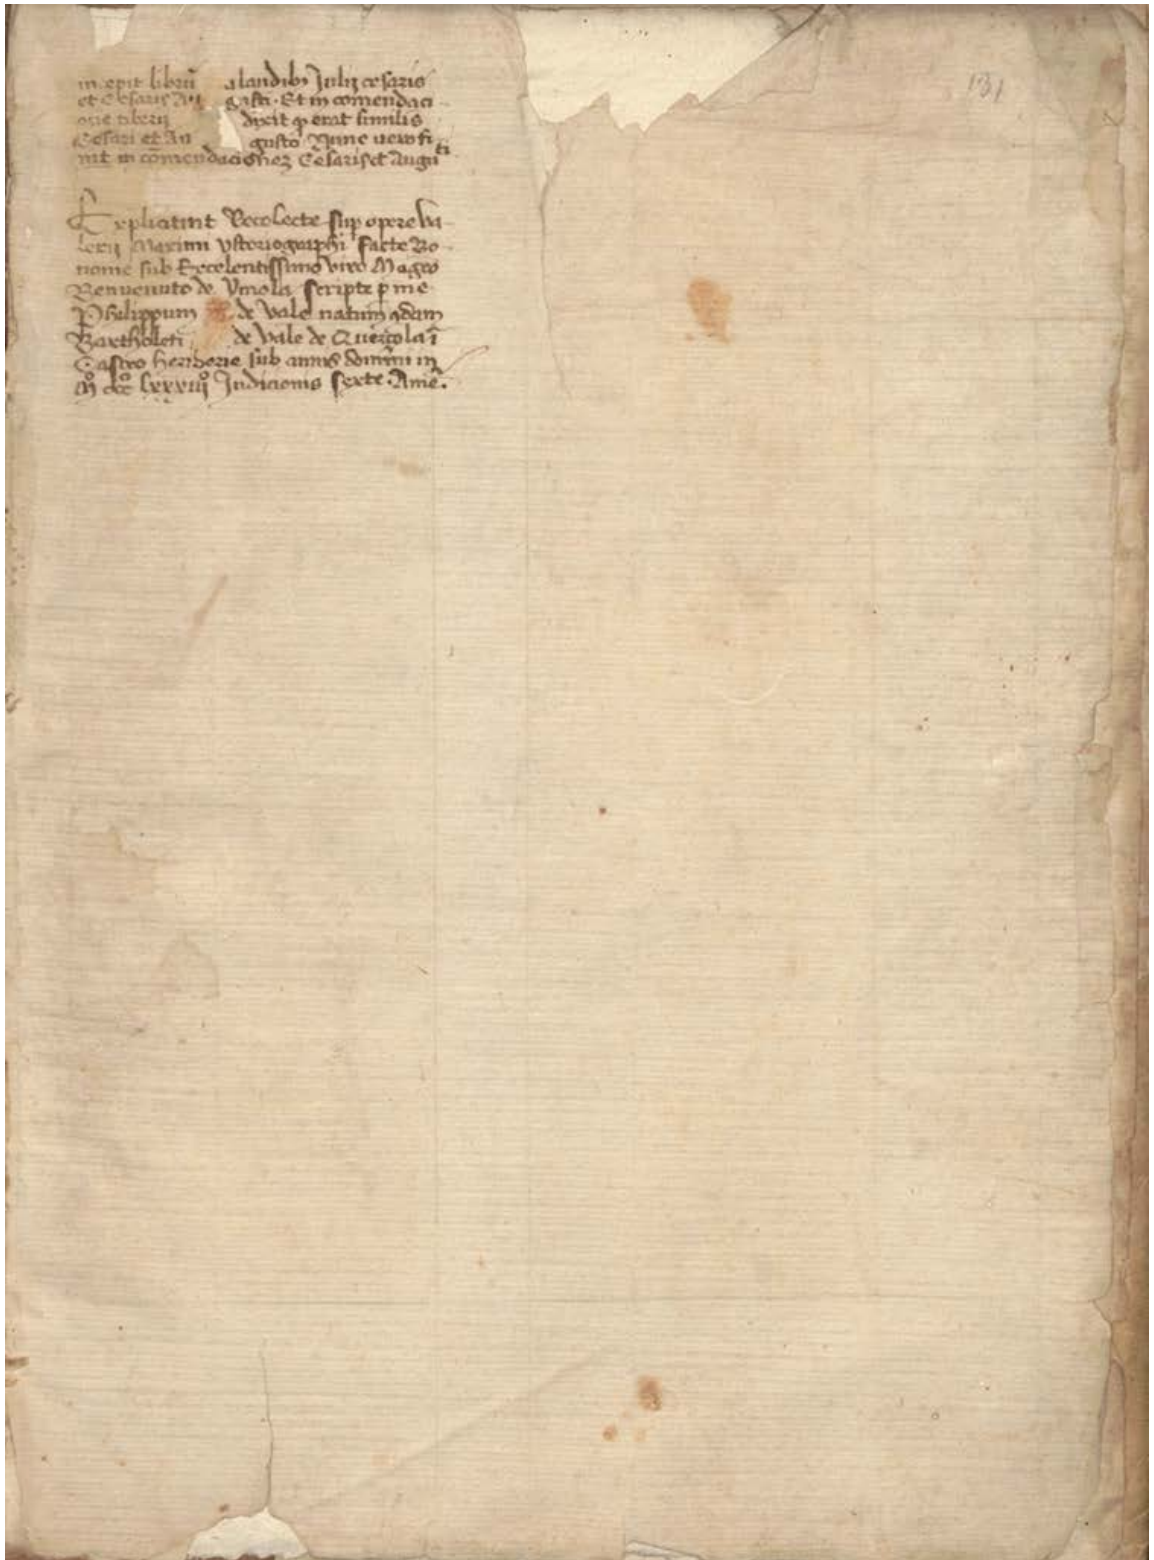 131
incepit librū a laudibꝰ Julij cesaris
et Cesaris Au gusti. Et in comendaci
one tiberij dixit ꝙ erat similis
Cesari et Au gusto Nunc uero fi
nit in cōmendacionez Cesaris et Augu
sti
Expliciunt Recolecte sup opere Va
lerij Maximi ystoriographi facte Bo
nonie sub Excelentissimo viro Magro
Benvenuto de Ymola scripte p me
Philippum de Vale natum qdam
Bartholeti de Vale de Quercola ī
Castro heriberie sub annis domini m
Mo ccco lxxxiijo Indicionis sexte. Amē.